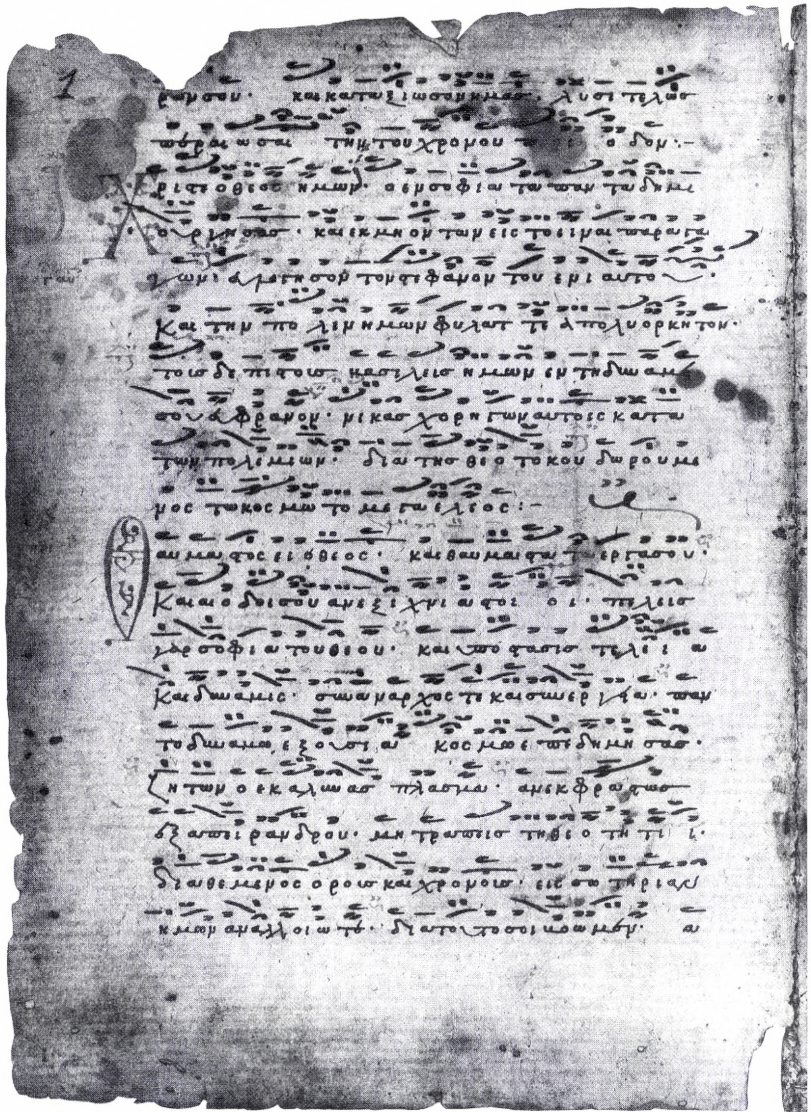 1
ρωνσον· και καταξιωσον ημας· λυσιτελως
περαιωσαι την του χρονου ο δον·
ριστε ο θεος ημων· ο εν σοφια τα παντα δημι
ουργησας· και εκ μη οντων εις το ειναι παραγα
γων· ευλογησον τον στεφανον του ενιαυτου·
Και την πο λιν ημων φυλαττε απολιορκητον·
τους δε πιστους βασιλεις ημων εν τη δυναμει
σου ευφρανον· νικας χορηγων αυτοις κατα
των πολεμιων· δια της θεο τοκου δωρουμε
νος τω κοσμω το μεγα ελεος :–
αυμαστος ει ο θεος· και θαυμαστα τα εργα σου·
Και αι ο δοι σου ανεξιχνι αστοι ο ι· πελεις
γαρ σοφια του θεου· και υποστασις τελει α
Και δυναμις· συναναρχος τε και συνεργεια· παν
το δυναμω εξουσι α κοσμω επεδημησας·
ζητων ο εκαλυνας πλασμα· ανεκφραστως
εξ απειρανδρου· μητρα πεις τη θεο τητι ι·
διαθεμενος ορους και χρονους· εις σωτηριαν
ημων αναλλοιωτε· δια τουτο σοι βοωμεν· α